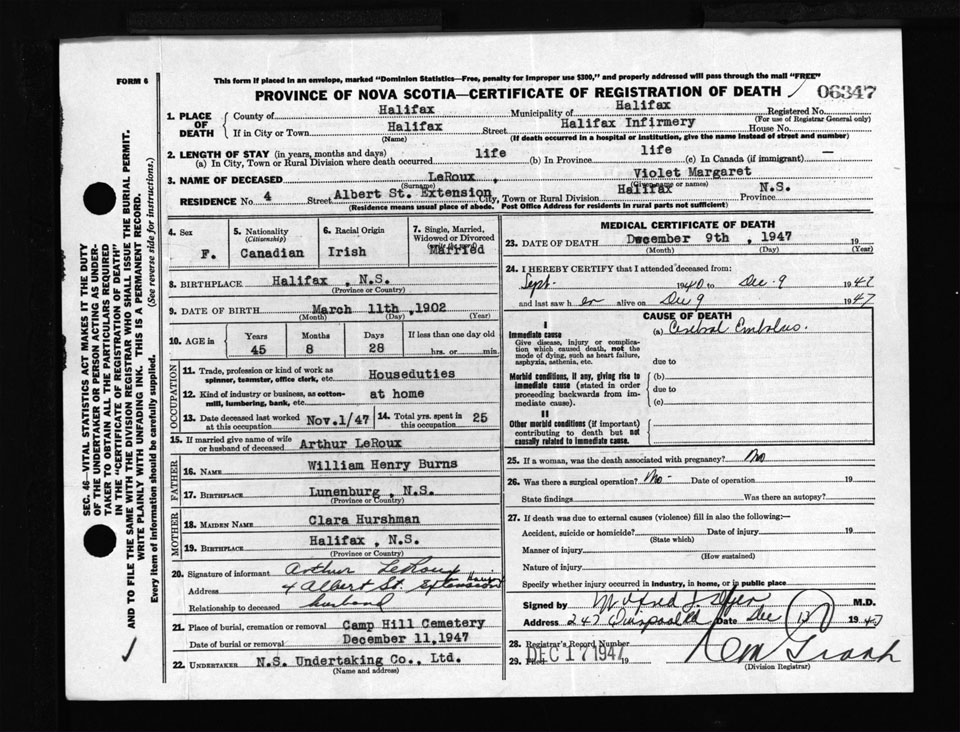 FORM 6
This form if placed in an envelope, marked "Dominion Statistics—Free, penalty for improper use $300," and properly addressed will pass through the mail "FREE"
PROVINCE OF NOVA SCOTIA—CERTIFICATE OF REGISTRATION OF DEATH 06347
1. PLACE OF DEATH
County of Halifax Municipality of Halifax Registered No.
(For use of Registrar General only)
If in City or Town Halifax Street Halifax Infirmery House No.
(Name) (If death occurred in a hospital or institution, give the name instead of street and number)
2. LENGTH OF STAY (in years, months and days)
(a) In City, Town or Rural Division where death occurred life (b) In Province life (c) In Canada (if immigrant) —
3. NAME OF DECEASED LeRoux, Violet Margaret
(Surname) (Given name or names)
RESIDENCE No. 4 Street Albert St. Extension City, Town or Rural Division Halifax Province N.S.
(Residence means usual place of abode. Post Office Address for residents in rural parts not sufficient)
4. Sex F.
5. Nationality (Citizenship) Canadian
6. Racial Origin Irish
7. Single, Married, Widowed or Divorced Married
8. BIRTHPLACE Halifax, N.S.
(Province or Country)
9. DATE OF BIRTH March 11th, 1902
(Month) (Day) (Year)
10. AGE in Years Months Days If less than one day old
45 8 28 hrs. or min.
OCCUPATION
11. Trade, profession or kind of work as spinner, teamster, office clerk, etc. Houseduties
12. Kind of industry or business, as cotton-mill, lumbering, bank, etc. at home
13. Date deceased last worked at this occupation Nov.1/47
14. Total yrs. spent in this occupation 25
15. If married give name of wife or husband of deceased Arthur LeRoux
FATHER
16. NAME William Henry Burns
17. BIRTHPLACE Lunenburg, N.S.
(Province or Country)
MOTHER
18. MAIDEN NAME Clara Hurshman
19. BIRTHPLACE Halifax, N.S.
(Province or Country)
20. Signature of informant Arthur LeRoux
Address 4 Albert St. Extension
Relationship to deceased husband
21. Place of burial, cremation or removal Camp Hill Cemetery
Date of burial or removal December 11, 1947
22. UNDERTAKER N.S. Undertaking Co., Ltd.
(Name and address)
MEDICAL CERTIFICATE OF DEATH
23. DATE OF DEATH December 9th, 1947 19
(Month) (Day) (Year)
24. I HEREBY CERTIFY that I attended deceased from:
Sept. 1940 to Dec. 9 1947
and last saw her alive on Dec 9 1947
CAUSE OF DEATH
I
Immediate cause
Give disease, injury or complication which caused death, not the mode of dying, such as heart failure, asphyxia, asthenia, etc.
(a) Cerebral Embolus.
due to
Morbid conditions, if any, giving rise to immediate cause (stated in order proceeding backwards from immediate cause).
(b)
due to
(c)
II
Other morbid conditions (if important) contributing to death but not causally related to immediate cause.
25. If a woman, was the death associated with pregnancy? No
26. Was there a surgical operation? No- Date of operation 19
State findings Was there an autopsy?
27. If death was due to external causes (violence) fill in also the following:—
Accident, suicide or homicide? Date of injury 19
(State which)
Manner of injury
(How sustained)
Nature of injury
Specify whether injury occurred in industry, in home, or in public place
Signed by M.D.
Address 247 Quinpool Rd Date Dec 1947
28. Registrar's Record Number
29. Filed DEC 17 1947 19
(Division Registrar)
SEC. 46—VITAL STATISTICS ACT MAKES IT THE DUTY
OF THE UNDERTAKER OR PERSON ACTING AS UNDER-
TAKER TO OBTAIN ALL THE PARTICULARS REQUIRED
IN THE "CERTIFICATE OF REGISTRATION OF DEATH"
AND TO FILE THE SAME WITH THE DIVISION REGISTRAR WHO SHALL ISSUE THE BURIAL PERMIT.
WRITE PLAINLY WITH UNFADING INK. THIS IS A PERMANENT RECORD.
Every item of information should be carefully supplied. (See reverse side for instructions.)